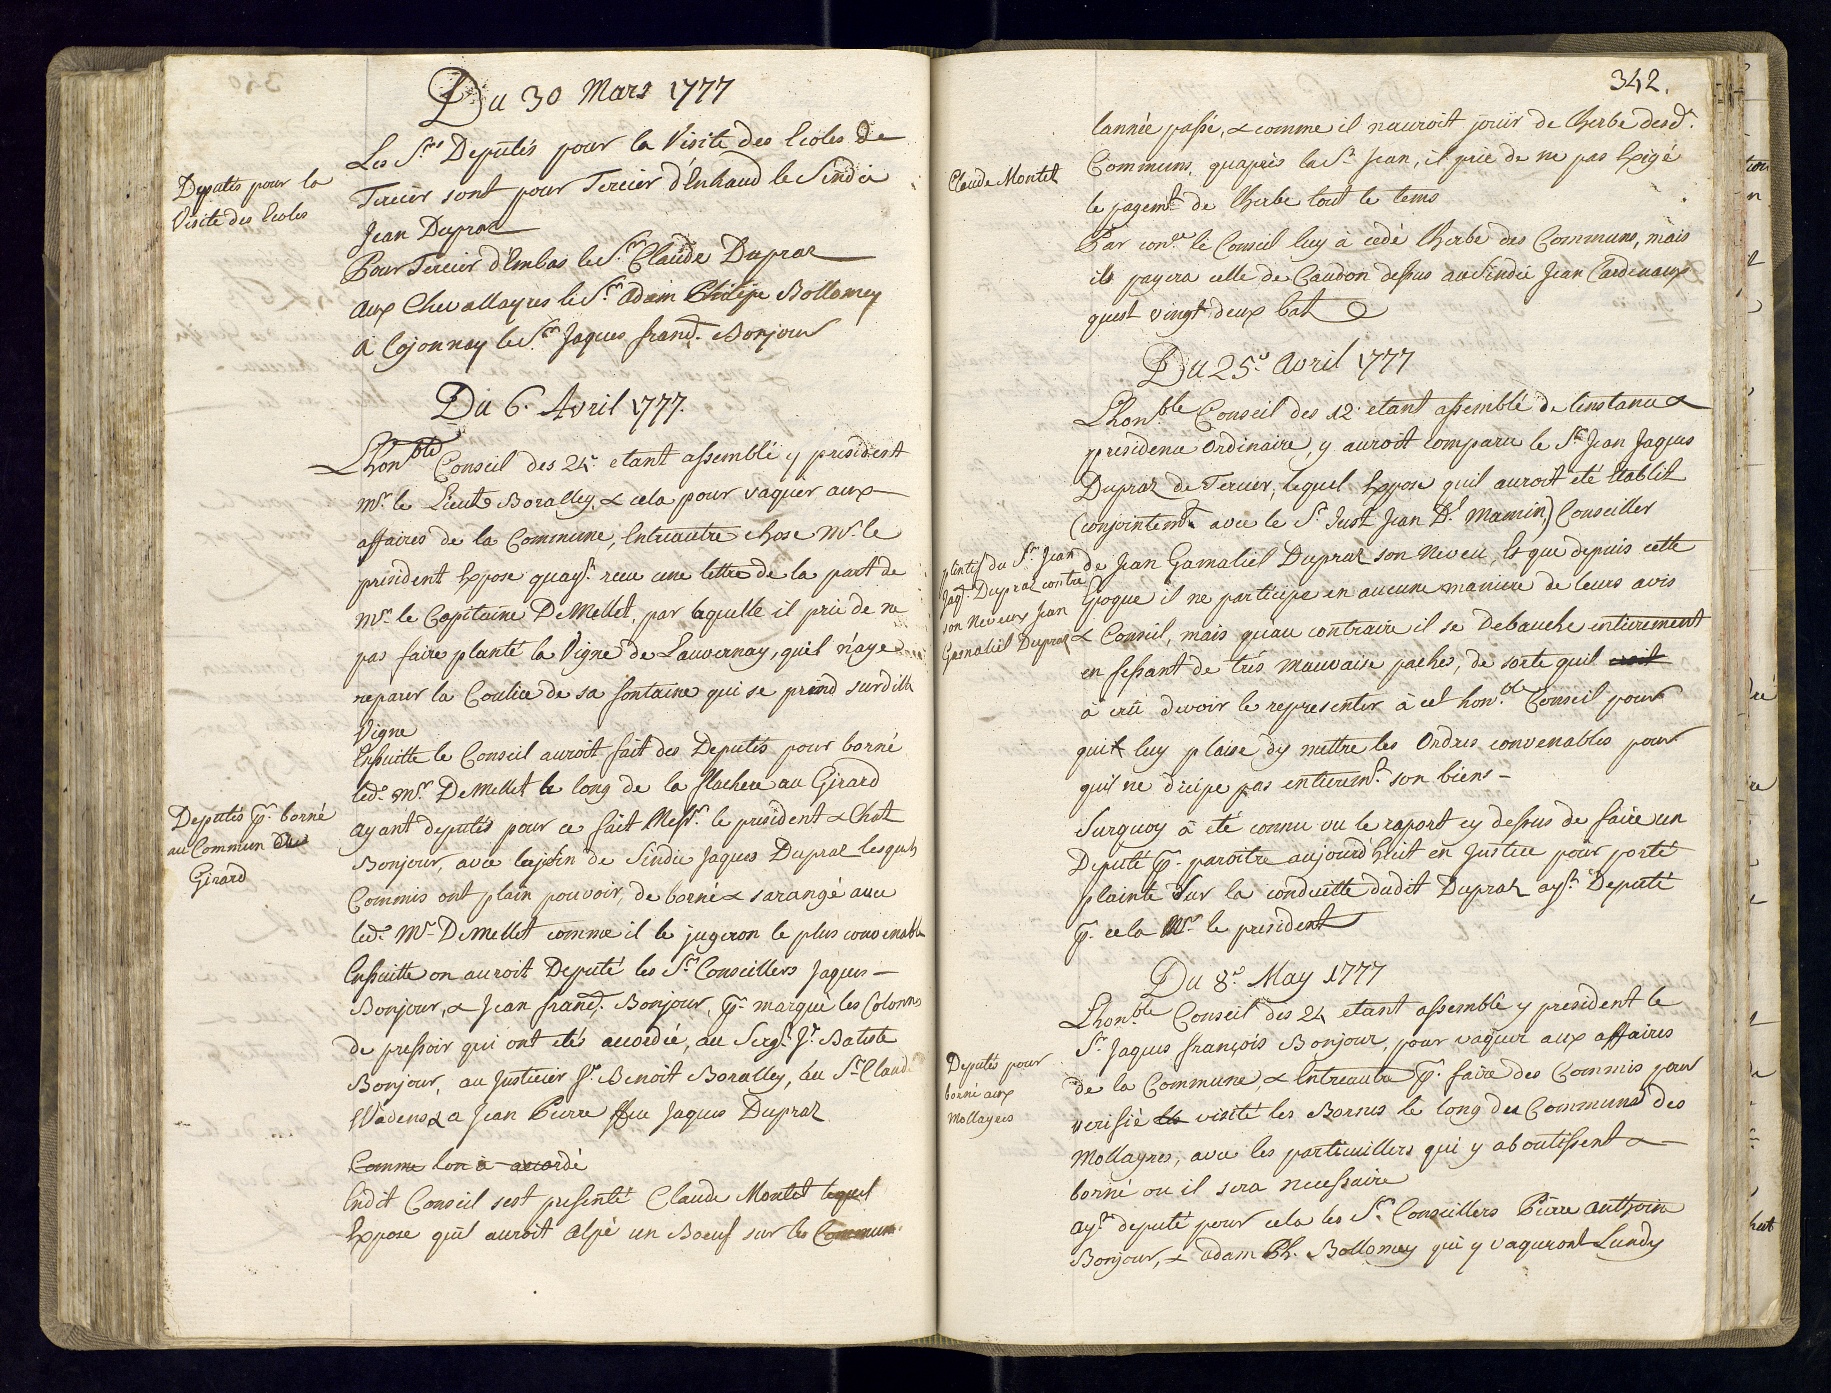 Du 30 Mars 1777
Deputés pour la
Visite des Ecoles
Les S.rs Deputés pour la Visite des Ecoles de
Tercier sont pour Tercier d'Enhaud le Sindic
Jean Dupraz
Pour Tercier d'Embas le S.r Claude Dupraz
aux Chevallayres le S.r Adam Philipe Bollomey
a Cojonnay le S.r Jaques franç. Bonjour
Du 6. Avril 1777.
Lhon.ble Conseil des 24. etant assemblé y president
M.r le Lieut. Boralley, & cela pour vaquer aux
affaires de la Commune, Entreautre chose M.r le
president Expose quay.t reçu une lettre de la part de
M.r le Capitaine DeMellet, par laquelle il prie de ne
pas faire planté la Vigne de Lauvernay, quil n'aye
reparer la Coulice de sa fontaine qui se prend surditte
Vigne
Ensuitte le Conseil auroit fait des Deputés pour borné
led. M.r DeMellet le long de la flachere au Girard
Deputés p.r borné
au Commun des
Girard
ayant deputés pour ce fait Mess.rs le president & Chat.
Bonjour, avec lajoin de Sindic Jaques Dupraz lesquels
Commis ont plain pouvoir, de borné & sarangé avec
led. M.r DeMellet comme il le jugeron le plus convenable
Ensuitte on auroit Deputé les S.rs Conseillers Jaques
Bonjour, & Jean franç. Bonjour, p.r marqué les Colonnes
de pressoir qui ont etés accordée, au Serg.t J.n Batiste
Bonjour, au Justicier J.n Benoit Boralley, au S.r Claude
Wadens & a Jean Pierre ffeu Jaques Dupraz
Comme lon a accordé
Endit Conseil sest presenté Claude Montet lequel
Expose quil auroit alpé un Boeuf sur les Commun.
342.
Claude Montet
lannée passé, & comme il nauroit jouir de lherbe desd.
Communs, quaprès la S.t Jean, il prie de ne pas Exigé
le pagem.t de lherbe tout le tems
Par con.ce le Conseil luy à cedé lherbe des Communs, mais
ils payera celle de Caudon dessus au Sindic Jean Cardinaux
quest vingt deux bat
Du 25.e Avril 1777
Lhon.ble Conseil des 12. etant assemblé de linstance &
presidence Ordinaire, y auroit comparu le S.r Jean Jaques
Dupraz de Tercier, lequel Expose quil auroit été Etablit
(conjointem.t avec le S.r Just. Jean D.l Mamin) Conseiller
plintif du S.r Jean
Jaq. Dupraz contre
son Neveux Jean
Gamaliel Dupraz
de Jean Gamaliel Dupraz son Neveu, Et que depuis cette
Epoque il ne participe en aucune maniere de leurs avis
& Conseil, mais quau contraire il se debauche entierement
en fessant de très mauvaise pache, de sorte quil croit
à crû devoir le representer à cet hon.ble Conseil pour
quil luy plaise dy mettre les Ordres convenables pour
quil ne dicipe pas entierem.t son biens
Surquoy à été connu vu le raport cy dessus de faire un
Deputé p.r paroitre aujourd'huit en Justice pour porté
plainte Sur la conduitte dudit Dupraz ay.t Deputé
p.r cela M.r le president
Du 8.e May 1777
Lhon.ble Conseil des 24 etant assemblé y president le
S.r Jaques françois Bonjour, pour vaquer aux affaires
Deputés pour
borné aux
Mollayres
de la Commune, & Entreautre p.r faire des Commis pour
verifié les visité les Bornes le long du Communs des
Mollayres, avec les particuillers qui y aboutissent &
borné ou il sera necessaire
ay.t deputé pour cela les S.rs Conseillers Pierre anthoine
Bonjour, & adam Ph. Bollomey qui y vaqueront Lundy